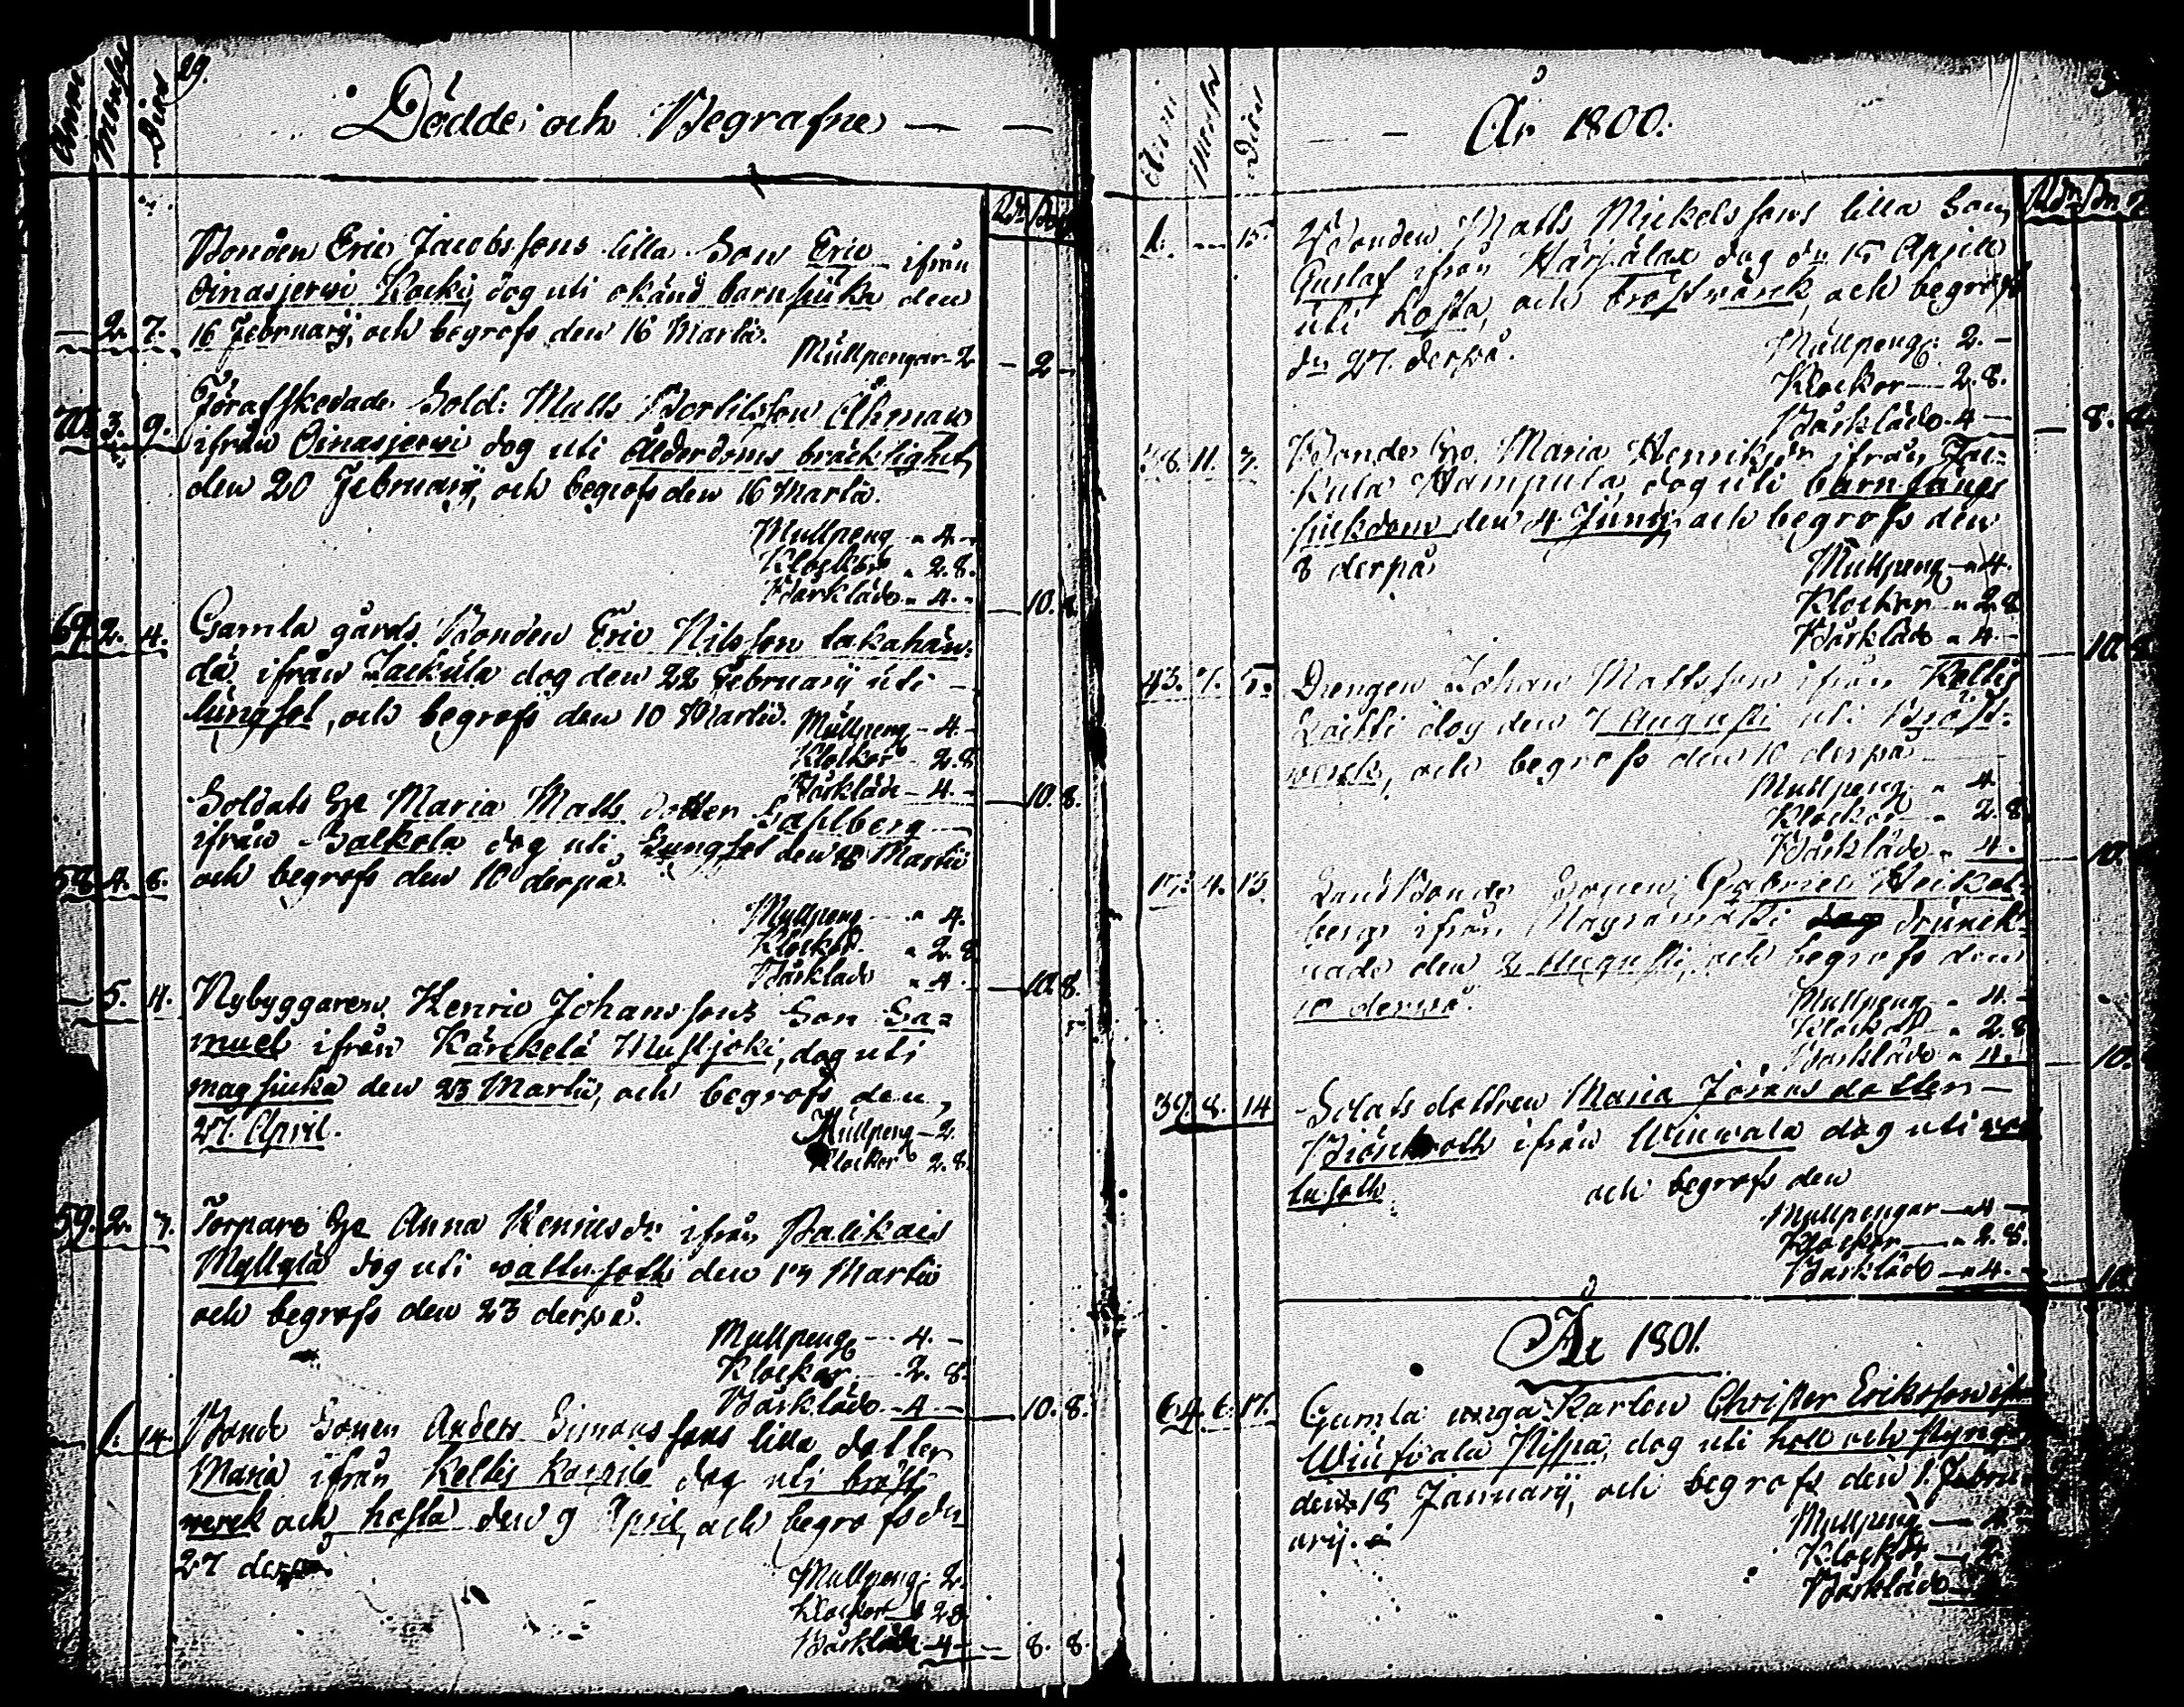 29.
Anni Menses Dies
Dödde och Begrafne — —
Rdr Sk
Bonden Eric Jacobssons lilla Son Eric ifrån
Oinasjerwi Kocki, dog uti okänd barnsjuka den
— 2. 7. 16 February, och begrofs den 16 Martii.
Mullpengar - 2 — 2 —
Förafskedade Sold: Matts Bertilsson Åhman
3. 9. ifrån Oinasjerwi dog uti Ålderdoms bräcklighet
den 20 February, och begrofs den 16 Martii.
Mullpeng „ 4. -
Klockor „ 2. 8.
Bårkläde „ 4. - — 10. 8.
69. 2. 4. Gamla gårds Bonden Eric Nilsson takahan-
dä ifrån Jackula dog den 22 February uti
lungsot, och begrofs den 10 Martii.
Mullpeng - 4. -
Klockor - 2. 8
Bårkläde - 4. - — 10. 8.
Soldats H. Maria Matts dotter Sahlberg
ifrån Salkola dog uti Lungsot den 8 Martii
58 4. 8. och begrofs den 10 derpå.
Mullpeng — „ 4.
Klockor „ 2. 8
Bårkläde „ 4. — 10. 8.
— 5. 4. Nybyggaren Henric Johanssons Son Sa=
muel ifrån Kärckelä Mustjoki, dog uti
magsjuka den 23 Martii, och begrofs den
27. April.
Mullpeng - 2.
Klockor - 2. 8.
59. 2. 7. Torpare H. Anna Henricsdr ifrån Palikais
Myllylä dog uti wattusott den 13 Martii
och begrofs den 23 derpå.
Mullpeng -- 4. -
Klockor -- 2. 8.
Bårkläde - 4 - — 10. 8.
— 1. 14. Bonde Sonen Anders Simonssons lilla dotter
Maria ifrån Keltis dog uti bröst-
werck och hosta den 9 April, och begrofs dn
27 derpå.
Mullpeng: 2.
Klockor 2 8.
Bårkläde - 4 - — 8. 8.
Anni Menses Dies
— År 1800.
Rdr Sk
1. — 15. Bonden Matts Mickelssons lilla Son
Gustaf ifrån Kärjälax dog dn 15 Aprill
uti hosta, och bröstwärck, och begrofs
dn 27. derpå.
Mullpeng: 2. -
Klockor — 2. 8.
Bårkläde 4 - — 8. 8.
38. 11. 7. Bonde H. Maria Henriksdr ifrån Jac=
kula Hampula dog uti barnsängs
sjukdom den 4 Junij, och begrofs den
8 derpå
Mullpeng - „ 4.
Klockor - „ 2. 8
Bårkläde „ 4. - — 10. 8
43. 7. 5. Drengen Johan Mattsson ifrån Keltis
Laitti dog den 7 Augusti uti Bröst-
werck, och begrofs den 10 derpå
Mullpeng „ 4
Klockor — „ 2. 8
Bårkläde „ 4. — 10.
17. 4. 13. Landbonde Sonen Gabriel Heikel-
bergs ifrån Haysamäki drunck-
nade den 2 Augusti, och begrofs den
10 derpå.
Mullpeng - „ 4. -
Klockor „ 2. 8
Bårkläde „ 4. — 10.
39. 8. 14 Solats dottren Maria Jörans dotter —
Björckroth ifrån Winwala dog uti wat
tusott och begrofs den
Mullpengar — „ 4 —
Klockor — „ 2. 8.
Bårkläde — „ 4. - — 10.
År 1801.
64. 6. 17. Gamla unga Karlen Christer Eriksson
dog uti håll och styng
den 18 January, och begrofs den 1. Febru
arij.
Mullpeng —
Klockor — 2.
Bårkläde